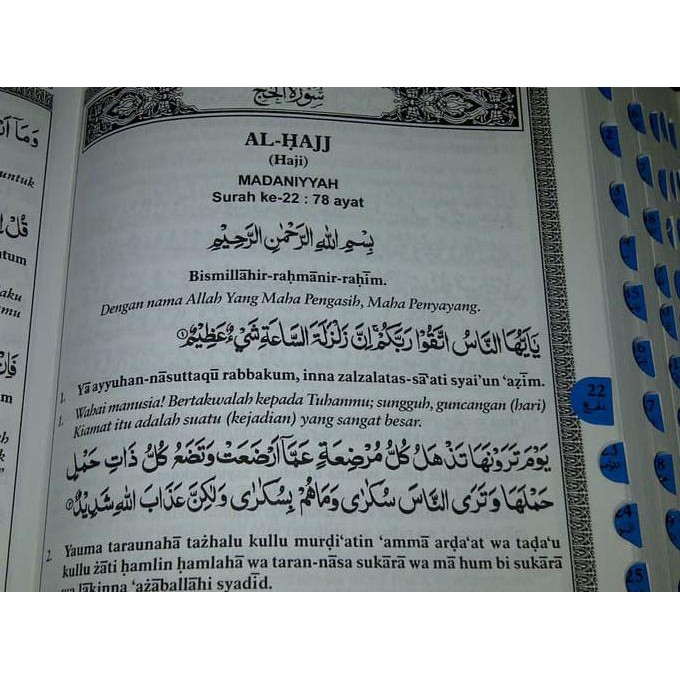 سُورَةُ الْحَجِّ
AL-ḤAJJ
(Haji)
MADANIYYAH
Surah ke-22 : 78 ayat
بِسْمِ اللهِ الرَّحْمٰنِ الرَّحِيْمِ
Bismillāhir-raḥmānir-raḥīm.
Dengan nama Allah Yang Maha Pengasih, Maha Penyayang.
يٰٓاَيُّهَا النَّاسُ اتَّقُوْا رَبَّكُمْۚ اِنَّ زَلْزَلَةَ السَّاعَةِ شَيْءٌ عَظِيْمٌ ١
1. Yā ayyuhan-nāsuttaqū rabbakum, inna zalzalatas-sā‘ati syai'un ‘aẓīm.
1. Wahai manusia! Bertakwalah kepada Tuhanmu; sungguh, guncangan (hari)
Kiamat itu adalah suatu (kejadian) yang sangat besar.
يَوْمَ تَرَوْنَهَا تَذْهَلُ كُلُّ مُرْضِعَةٍ عَمَّآ اَرْضَعَتْ وَتَضَعُ كُلُّ ذَاتِ حَمْلٍ
حَمْلَهَا وَتَرَى النَّاسَ سُكٰرٰى وَمَا هُمْ بِسُكٰرٰى وَلٰكِنَّ عَذَابَ اللهِ شَدِيْدٌ ٢
2. Yauma taraunahā tażhalu kullu murḍi‘atin ‘ammā arḍa‘at wa taḍa‘u
kullu żāti ḥamlin ḥamlahā wa taran-nāsa sukārā wa mā hum bi sukārā
wa lākinna ‘ażāballāhi syadīd.
untuk
atum
22
الحج
24
25